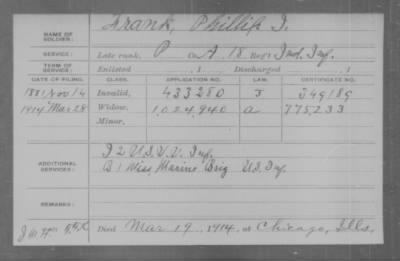 NAME OF SOLDIER: Frank, Phillip I.
SERVICE: Late rank, P Co. A, 18 Reg't Ind. Inf.
TERM OF SERVICE: Enlisted , 1 Discharged , 1
DATE OF FILING. CLASS. APPLICATION NO. LAW. CERTIFICATE NO.
1881 Nov 14 Invalid, 433280 J 349189
1914 Mar 28 Widow, 1,024,940 a 775,233
Minor,
ADDITIONAL SERVICES: I 2 U.S.V.V. Inf.
B 1 Miss. Marine Brig U.S. Inf.
REMARKS:
Died Mar 19, 1914, at Chicago, Ills,